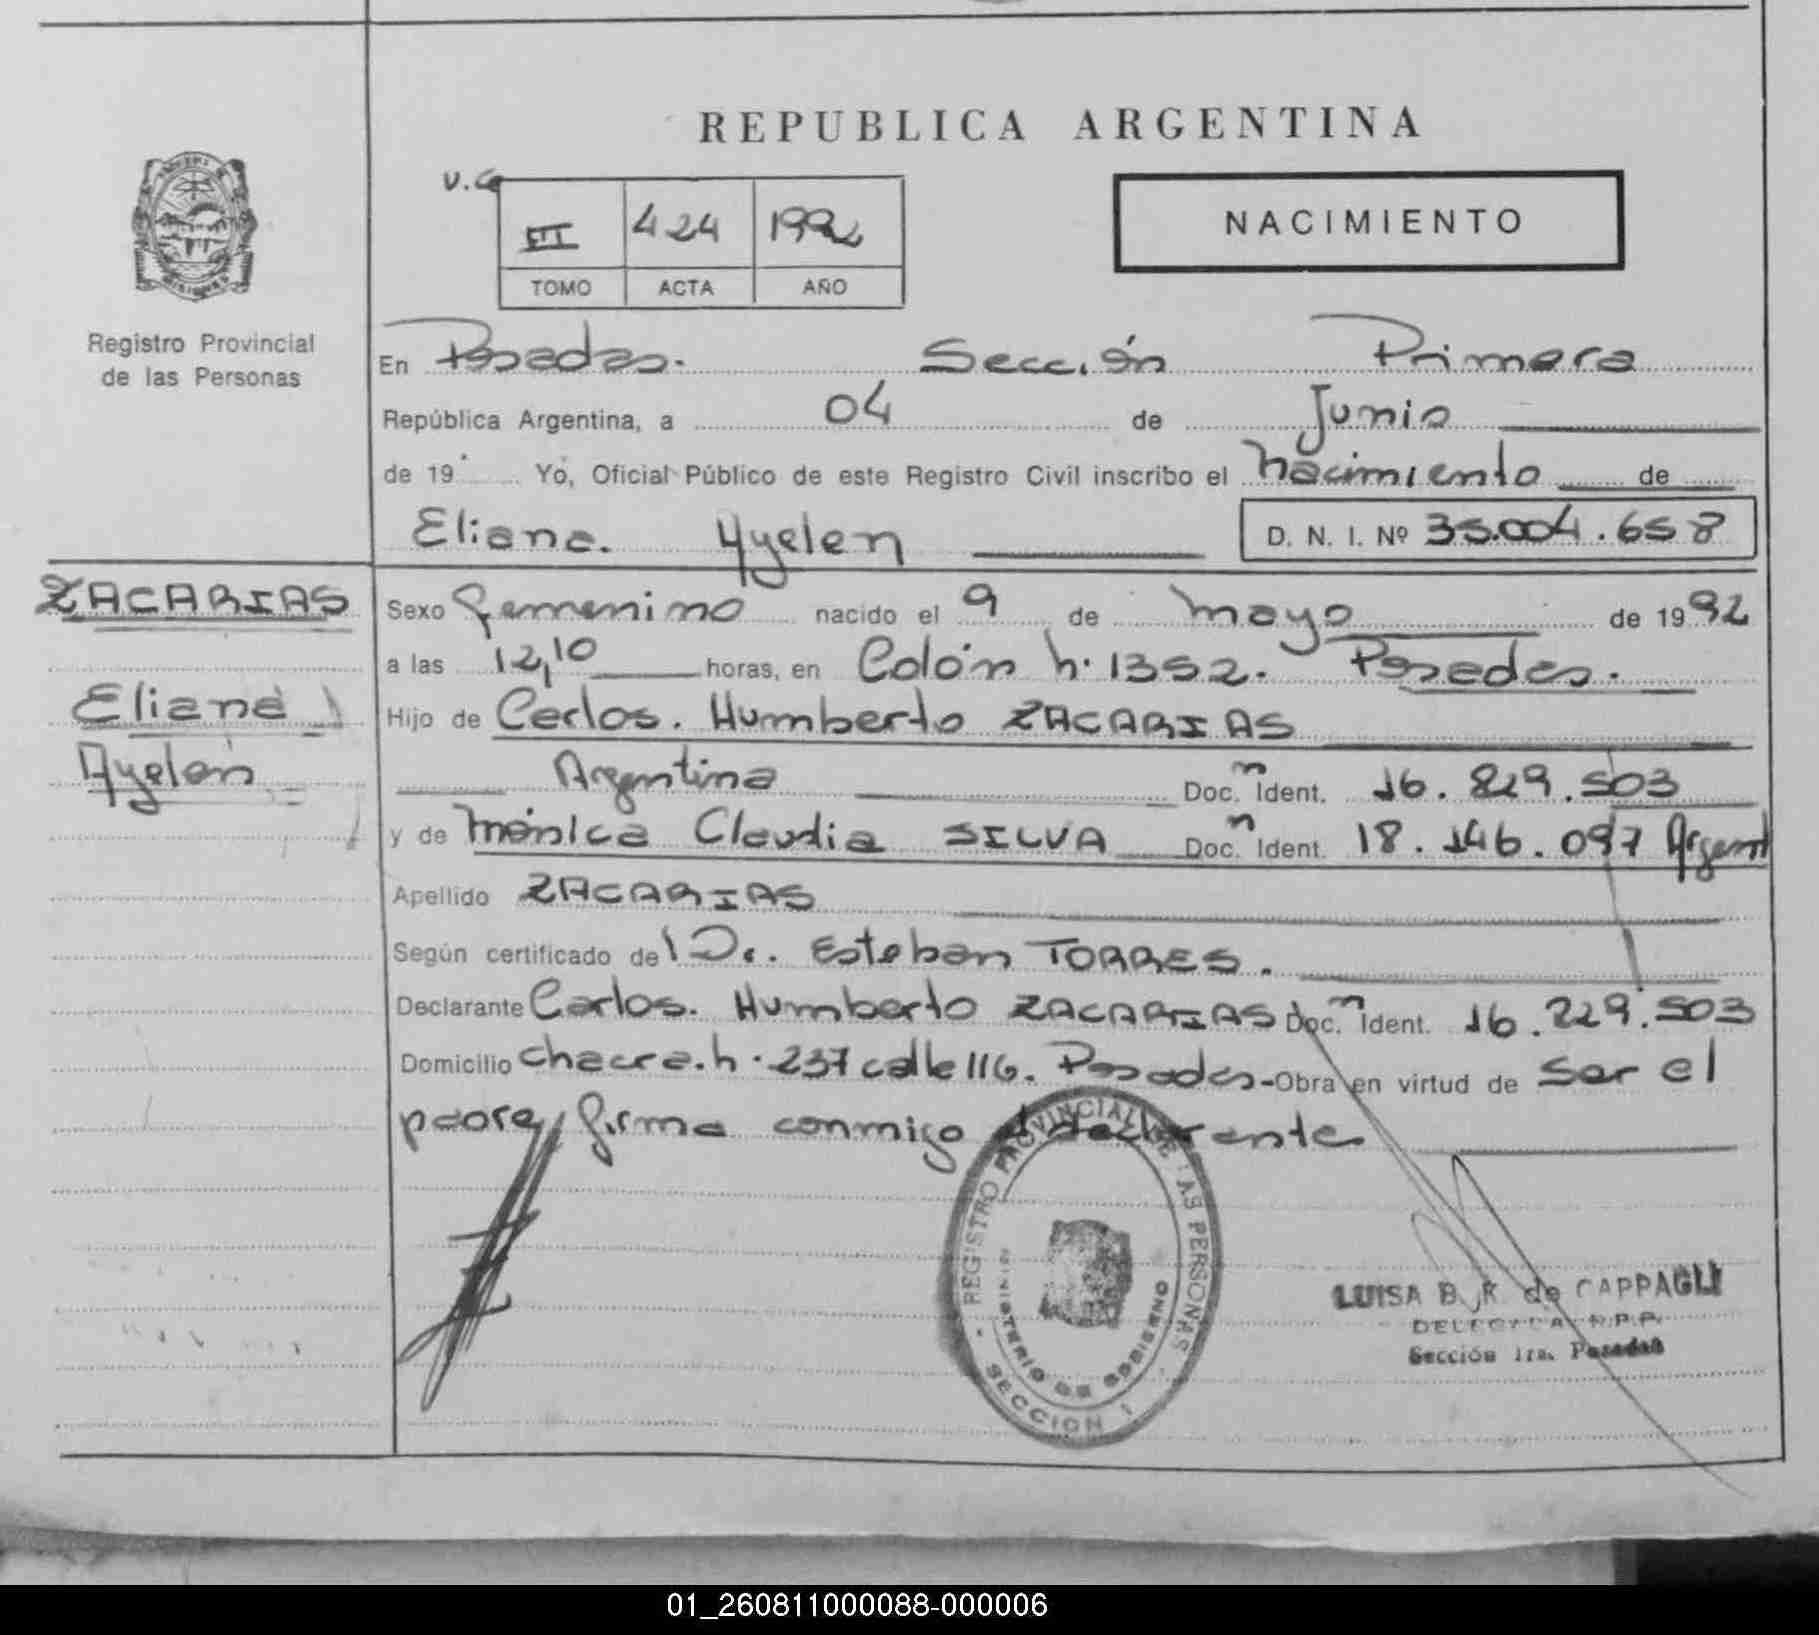 REPUBLICA ARGENTINA
V.C
III 424 1992
TOMO ACTA AÑO
NACIMIENTO
Registro Provincial
de las Personas
En Posadas. Sección Primera
República Argentina, a 04 de Junio
de 19 Yo, Oficial Público de este Registro Civil inscribo el nacimiento de
Eliana. Ayelen D. N. I. Nº 35.004.658
ZACARIAS
Eliana
Ayelén
Sexo femenino nacido el 9 de mayo de 1992
a las 12,10 horas, en Colón n. 1352. Posadas.
Hijo de Carlos. Humberto ZACARIAS
Argentina Doc. n Ident. 16.829.503
y de Mónica Claudia SILVA Doc. n Ident. 18.146.097 Argent
Apellido ZACARIAS
Según certificado de l Dr. Esteban TORRES.
Declarante Carlos. Humberto ZACARIAS Doc. n Ident. 16.229.503
Domicilio chacra. n. 237 calle 116. Posadas-Obra en virtud de ser el
padre, firma conmigo el declarante
REGISTRO PROVINCIAL DE LAS PERSONAS
MINISTERIO DE GOBIERNO
SECCION 1
LUISA B. R. de CAPPAGLI
DELEGADA R.P.P.
Sección 1ra. Posadas
01_260811000088-000006